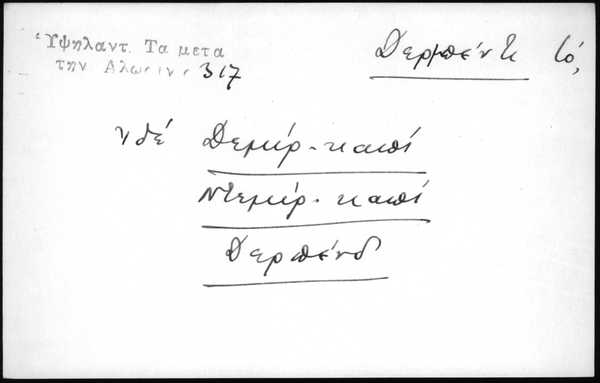 Ὑψηλαντ. Τα μετα
την Αλωσιν 317
Δερμπέντ τό,
ἰδέ Δεμίρ-καπί
Ντεμίρ-καπί
Δερπένδ